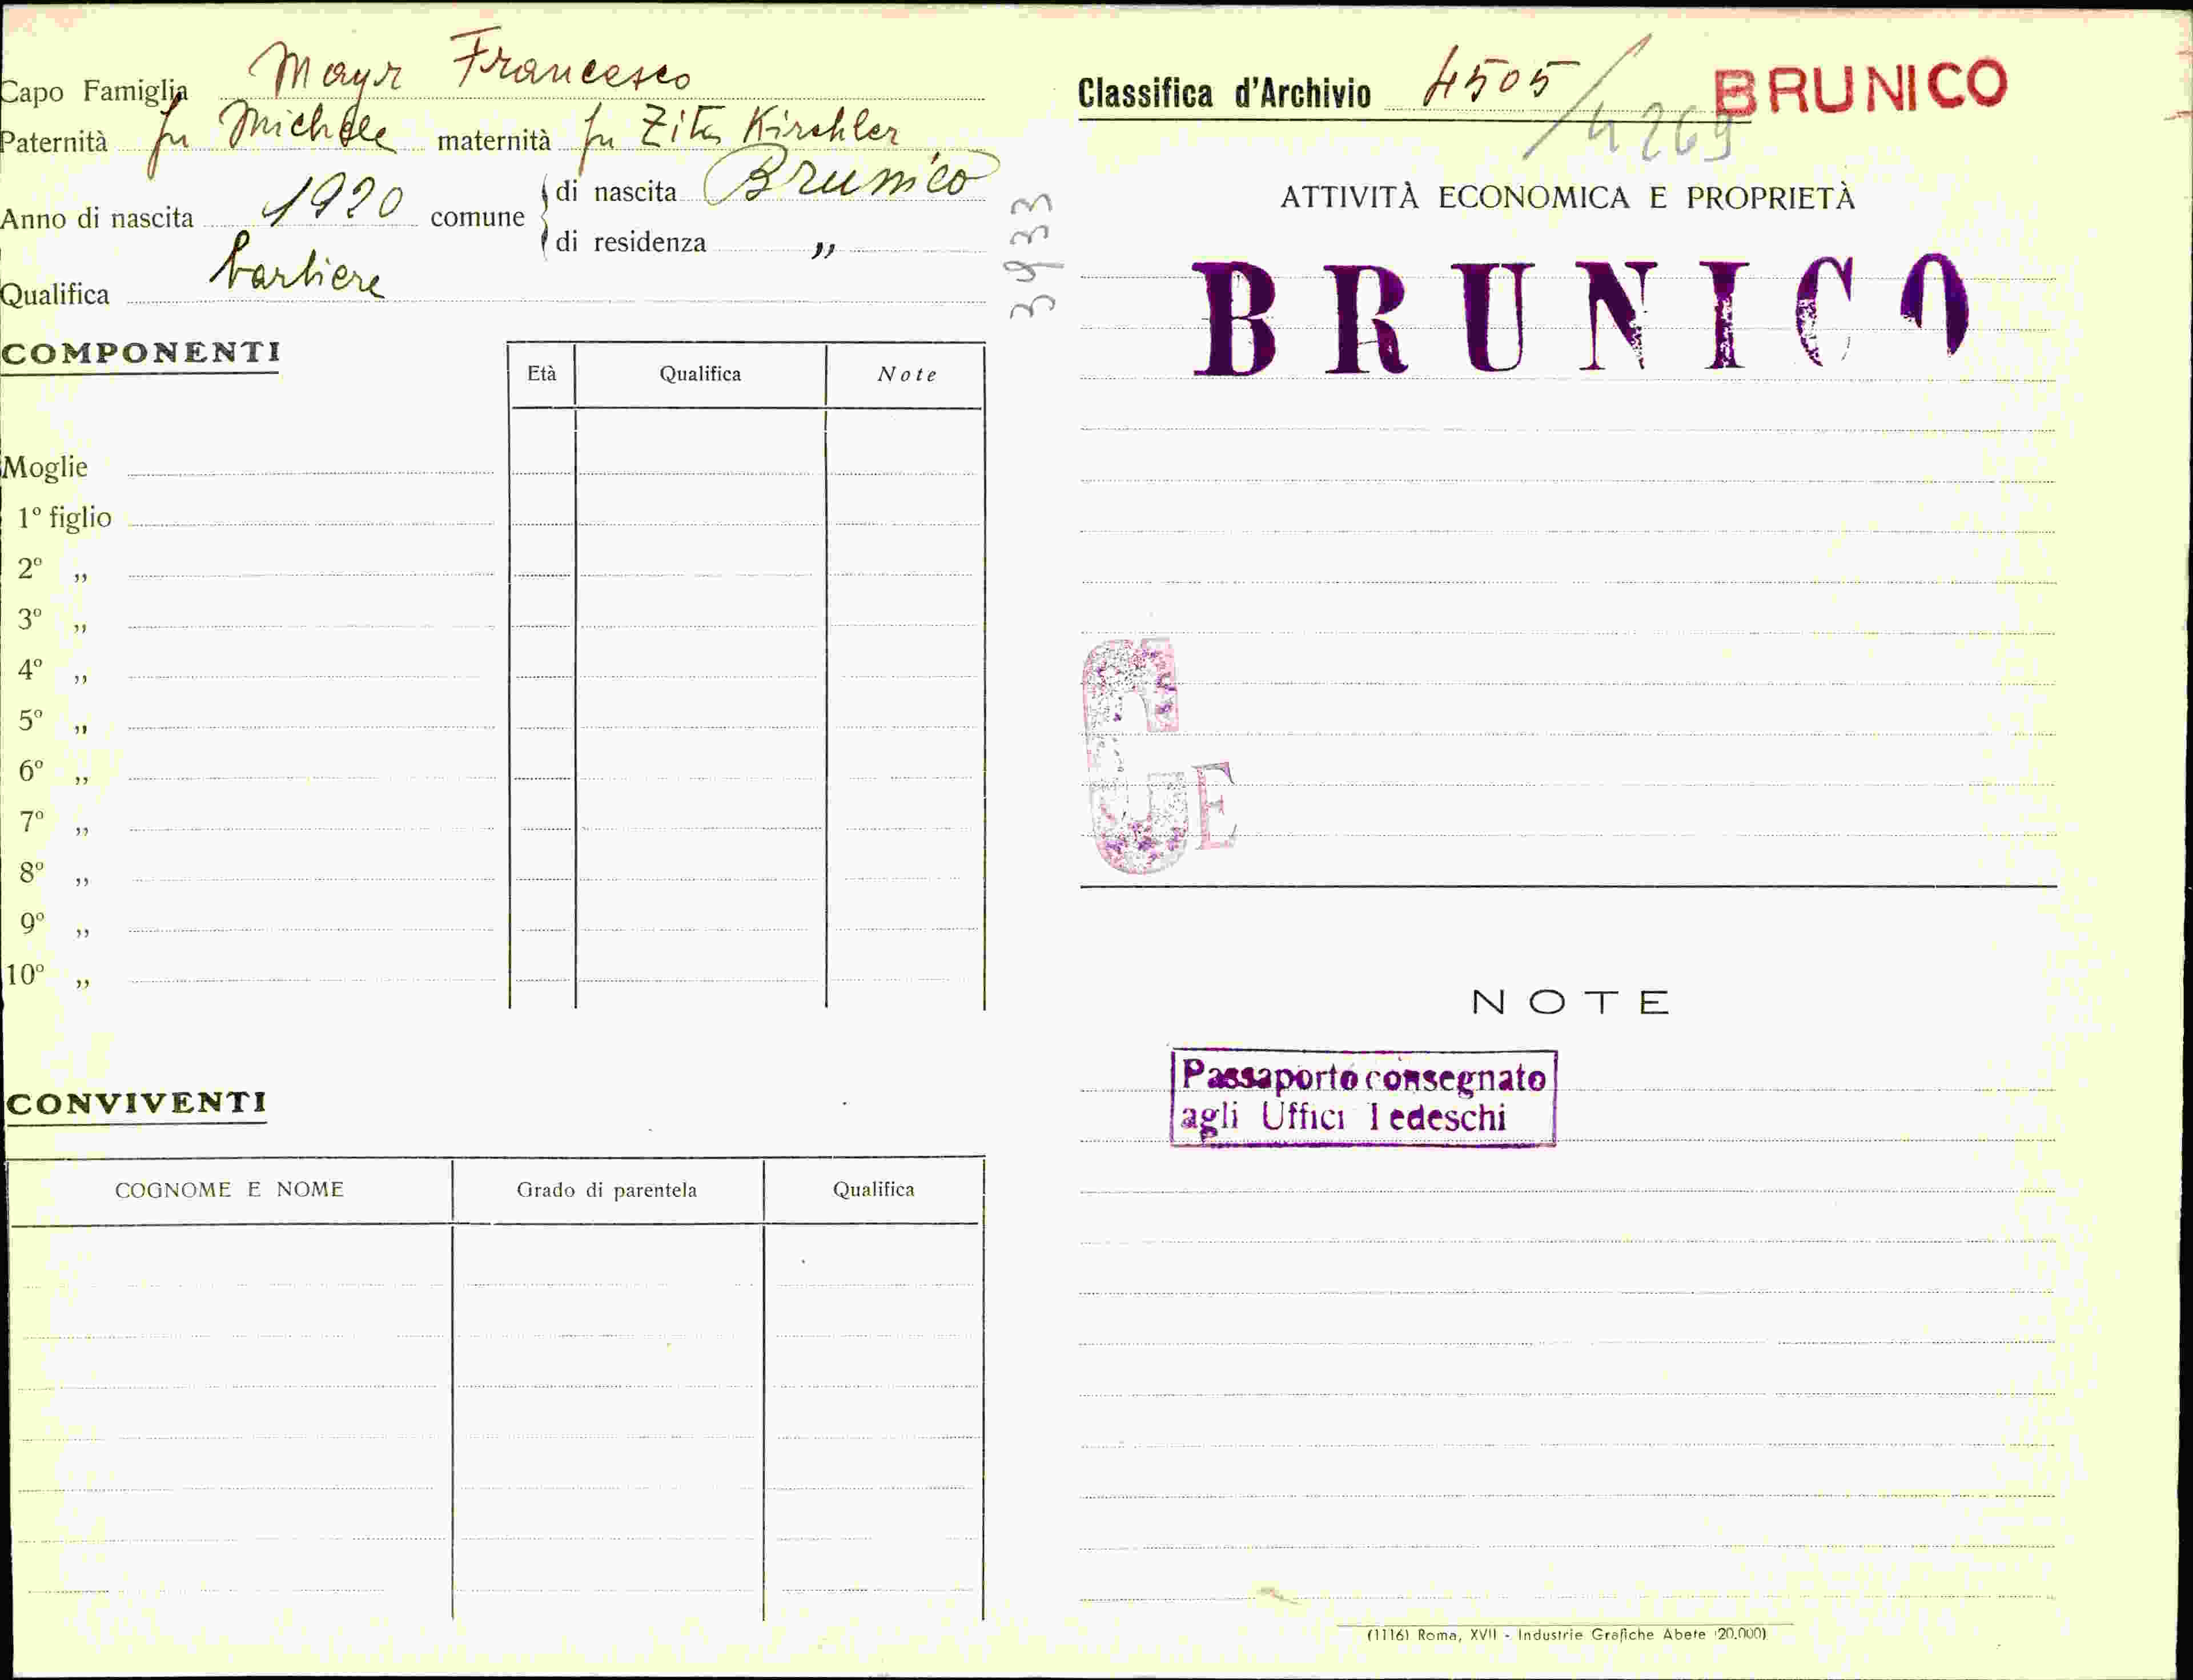 Capo Famiglia Mayr Francesco
Paternità fu Michele maternità fu Zita Kirchler
Anno di nascita 1920 comune di nascita Brunico
di residenza „
Qualifica barbiere
3933
COMPONENTI
Età Qualifica Note
Moglie
1º figlio
2º „
3º „
4º „
5º „
6º „
7º „
8º „
9º „
10º „
CONVIVENTI
COGNOME E NOME Grado di parentela Qualifica
Classifica d'Archivio 4505/4269 BRUNICO
ATTIVITÀ ECONOMICA E PROPRIETÀ
BRUNICO
G E
NOTE
Passaporto consegnato
agli Uffici Tedeschi
(1116) Roma, XVII - Industrie Grafiche Abete (20.000)